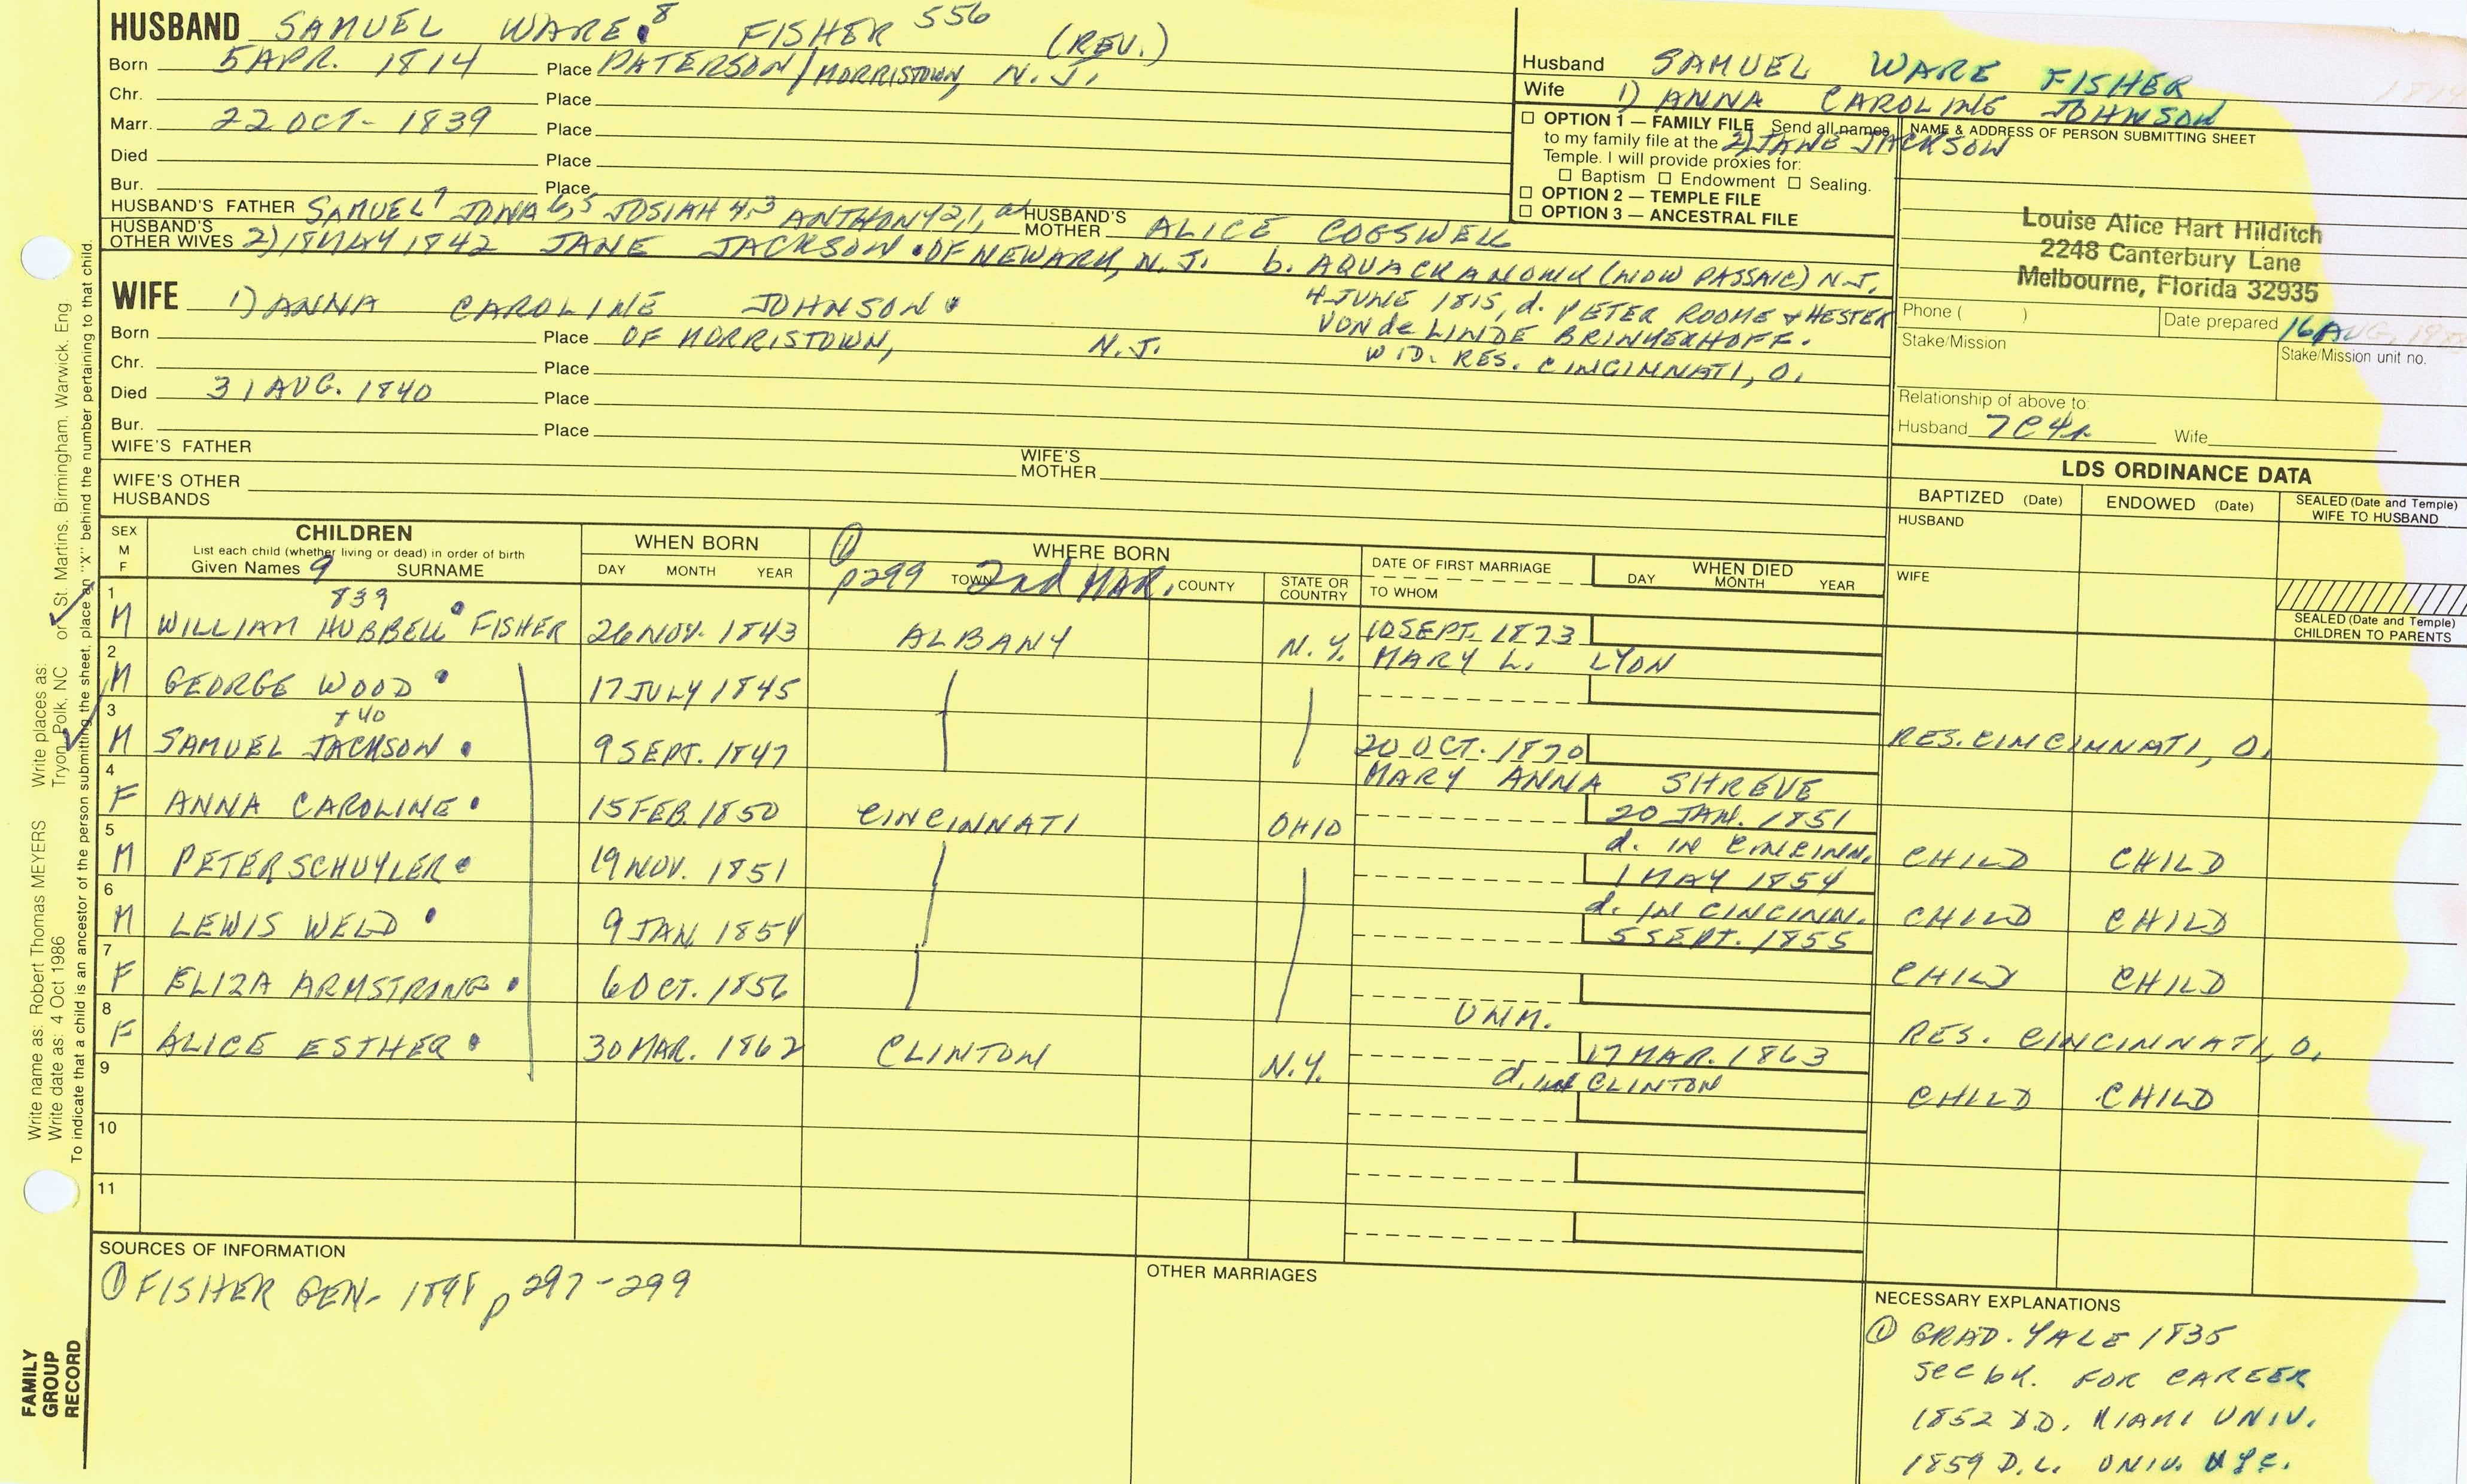 HUSBAND SAMUEL WARE 8 FISHER 556 (REV.)
Born 5 APR. 1814 Place PATERSON/MORRISTOWN, N.J.
Chr. Place
Marr. 22 OCT- 1839 Place
Died Place
Bur. Place
HUSBAND'S FATHER SAMUEL 7 JONA 6,5 JOSIAH 4,3 ANTHONY 2,1, HUSBAND'S MOTHER ALICE COGSWELL
HUSBAND'S OTHER WIVES 2) 18 MAY 1842 JANE JACKSON OF NEWARK, N.J. b. AQUACKANONK (NOW PASSAIC) N.J.
4 JUNE 1815, d. PETER ROOME & HESTER
VON de LINDE BRINKERHOFF.
WID. RES. CINCINNATI, O.
WIFE 1) ANNA CAROLINE JOHNSON
Born Place OF MORRISTOWN, N.J.
Chr. Place
Died 31 AUG. 1840 Place
Bur. Place
WIFE'S FATHER WIFE'S MOTHER
WIFE'S OTHER HUSBANDS
Husband SAMUEL WARE FISHER
Wife 1) ANNA CAROLINE JOHNSON
2) JANE JACKSON
☐ OPTION 1 — FAMILY FILE Send all names
to my family file at the
Temple. I will provide proxies for:
☐ Baptism ☐ Endowment ☐ Sealing.
☐ OPTION 2 — TEMPLE FILE
☐ OPTION 3 — ANCESTRAL FILE
NAME & ADDRESS OF PERSON SUBMITTING SHEET
Louise Alice Hart Hilditch
2248 Canterbury Lane
Melbourne, Florida 32935
Phone ( ) Date prepared 16 AUG, 1988
Stake/Mission Stake/Mission unit no.
Relationship of above to:
Husband 7C4r Wife
LDS ORDINANCE DATA
BAPTIZED (Date) ENDOWED (Date) SEALED (Date and Temple) WIFE TO HUSBAND
HUSBAND
WIFE
SEALED (Date and Temple) CHILDREN TO PARENTS
SEX M F
CHILDREN
List each child (whether living or dead) in order of birth
Given Names 9 SURNAME
WHEN BORN
DAY MONTH YEAR
① p299 2nd MAR.
WHERE BORN
TOWN COUNTY STATE OR COUNTRY
DATE OF FIRST MARRIAGE
TO WHOM
WHEN DIED
DAY MONTH YEAR
1 M 839 WILLIAM HUBBELL FISHER 26 NOV. 1843 ALBANY N.Y. 10 SEPT. 1873 MARY L. LYON
2 M GEORGE WOOD 17 JULY 1845
3 M +40 SAMUEL JACKSON 9 SEPT. 1847 20 OCT. 1870 MARY ANNA SHREVE RES. CINCINNATI, O.
4 F ANNA CAROLINE 15 FEB. 1850 CINCINNATI OHIO 20 JAN. 1851 d. IN CINCINN. CHILD CHILD
5 M PETER SCHUYLER 19 NOV. 1851 1 MAY 1854 d. IN CINCINN. CHILD CHILD
6 M LEWIS WELD 9 JAN. 1854 5 SEPT. 1855 CHILD CHILD
7 F ELIZA ARMSTRONG 6 OCT. 1856 UNM. RES. CINCINNATI, O.
8 F ALICE ESTHER 30 MAR. 1862 CLINTON N.Y. 17 MAR. 1863 d. IN CLINTON CHILD CHILD
9
10
11
SOURCES OF INFORMATION
① FISHER GEN- 1898 p 297-299
OTHER MARRIAGES
NECESSARY EXPLANATIONS
① GRAD. YALE 1835
see bk. FOR CAREER
1852 D.D. MIAMI UNIV.
1859 D.L. UNIV. NYC.
Write name as: Robert Thomas MEYERS Write places as: Tryon, Polk, NC or St. Martins, Birmingham, Warwick, Eng
Write date as: 4 Oct 1986
To indicate that a child is an ancestor of the person submitting the sheet, place an "X" behind the number pertaining to that child.
FAMILY
GROUP
RECORD